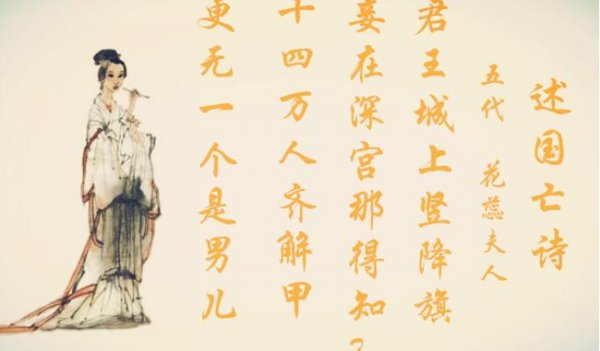 述国亡诗
五代 花蕊夫人
君王城上竖降旗
妾在深宫那得知?
十四万人齐解甲
更无一个是男儿